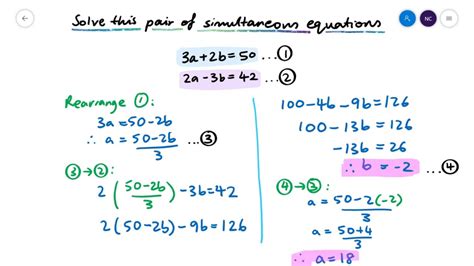 Solve this pair of simultaneous equations
NC
3a+2b=50 ...①
2a-3b=42 ...②
Rearrange ①:
3a=50-2b
∴ a = 50-2b/3 ...③
③→②:
2(50-2b/3) -3b=42
2(50-2b)-9b=126
100-4b-9b=126
100-13b=126
-13b=26
∴ b=-2 ...④
④→③:
a = 50-2(-2)/3
a = 50+4/3
∴ a=18